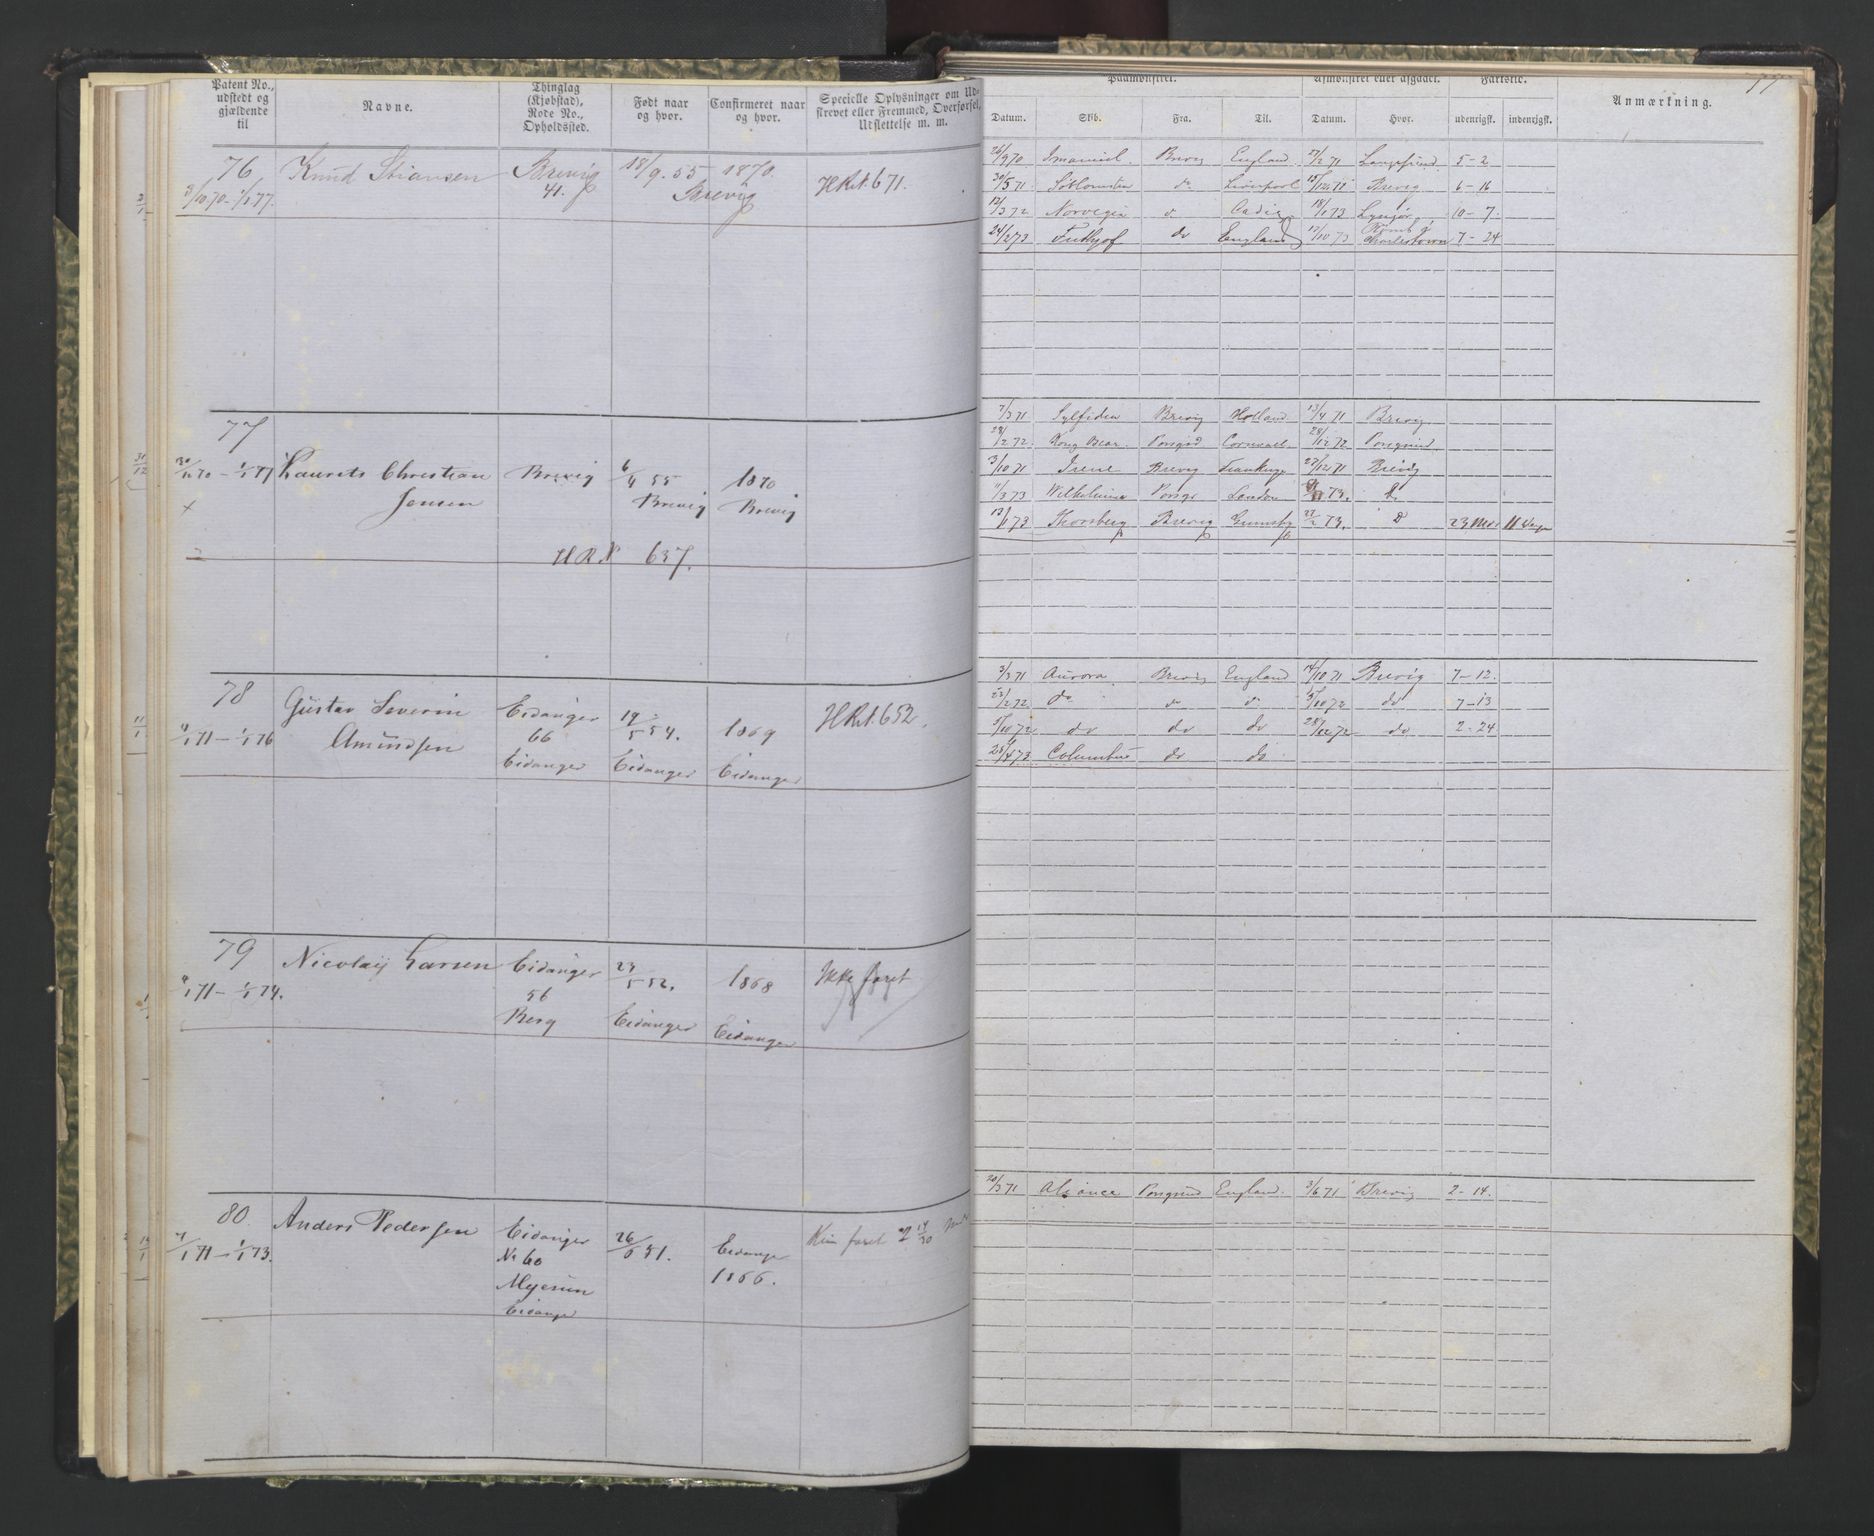 Patent No., udstedt og gjældende til
Navne.
Thinglag (Kjøbstad), Rode No., Opholdssted.
Født naar og hvor.
Confirmeret naar og hvor.
Specielle Oplysninger om Udskrevet eller Fremmed, Overførsel, Udslettelse m. m.
76
3/10 70 - 1/1 77.
Knud Stiansen
Brevig
41.
18/9. 55
1870.
Brevig
HRul. 671.
77
30/11 70 - 1/1 77
Laurits Christian
Jensen
Brevig
6/4 55
Brevig
1870
Brevig
H R N 637.
78
4/1 71 - 1/1 76
Gustav Severin
Amundsen
Eidanger
66
Eidanger
19/5 54.
Eidanger
1869
Eidanger
HRul. 652.
79
4/1 71 - 1/1 74.
Nicolaij Larsen
Eidanger
56
Berg
23/5 52.
Eidanger
1868
Eidanger
Ikke faret
80.
4/1 71 - 1/1 73.
Anders Pedersen
Eidanger
No 60
Eidanger
26/5 51.
Eidanger
1866.
Kun faret 2 14/30
Paamønstret.
Afmønstret eller afgaaet.
Fartstid.
Anmærkning.
77
Datum. Skib. Fra. Til. Datum. Hvor. udenrigsk. indenrigsk.
26/9 70 Imanuel. Brevig England 27/2 71 Langesund 5-2
30/5 71 do Liverpool 15/12 71 Brevig 6-16
12/3 72 Norvegia do Cadix 18/1 73 Lyngør 10-7.
24/2 73 do England 13/10 73 Charlestown 7-24
7/3 71 Sylfiden Brevig Holland 13/4 71 Brevig
28/2 72. Kong Bear. Porsgrd Cornwall. 28/12 72 Porsgrund
3/10 71 Irene Brevig 23/12 71 Brevig
11/3 73 Wilhelmine Porsgr London 73. Do
13/1 73 Thorsberg Brevig Grimsby 27/2 73. Do 23 Mdr 11 Dage
3/3 71 Aurora Brevig England 14/10 71 Brevig 7-12.
23/2 72 do do do 5/10 72 do 7-13
5/10 72 do do do 28/12 72 do 2-24
25/4 73 Columbus do do
20/3 71 Aliance Porsgrund England. 3/6 71 Brevig 2-14.